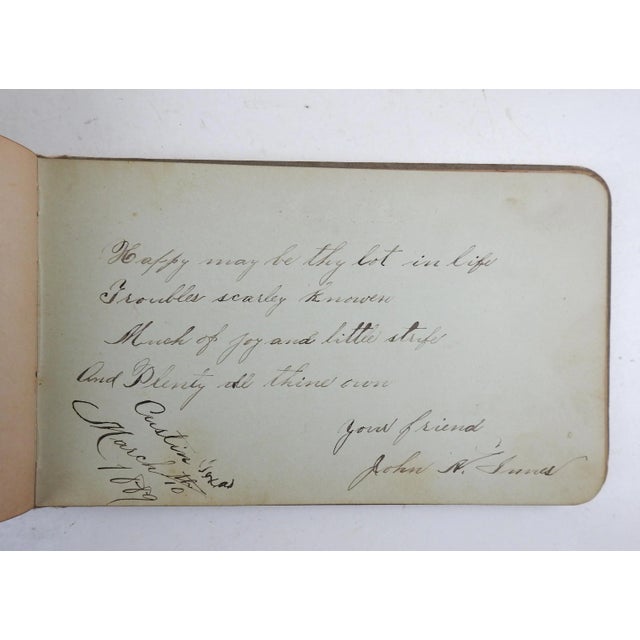 Happy may be thy lot in life
Troubles scarley knowen
Much of joy and little strife
And Plenty all thine own
your friend
John
Texas
March 10th
1889